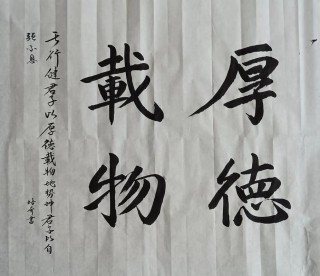 厚德
載物
天行健君子以厚德載物地勢坤君子以自
強不息